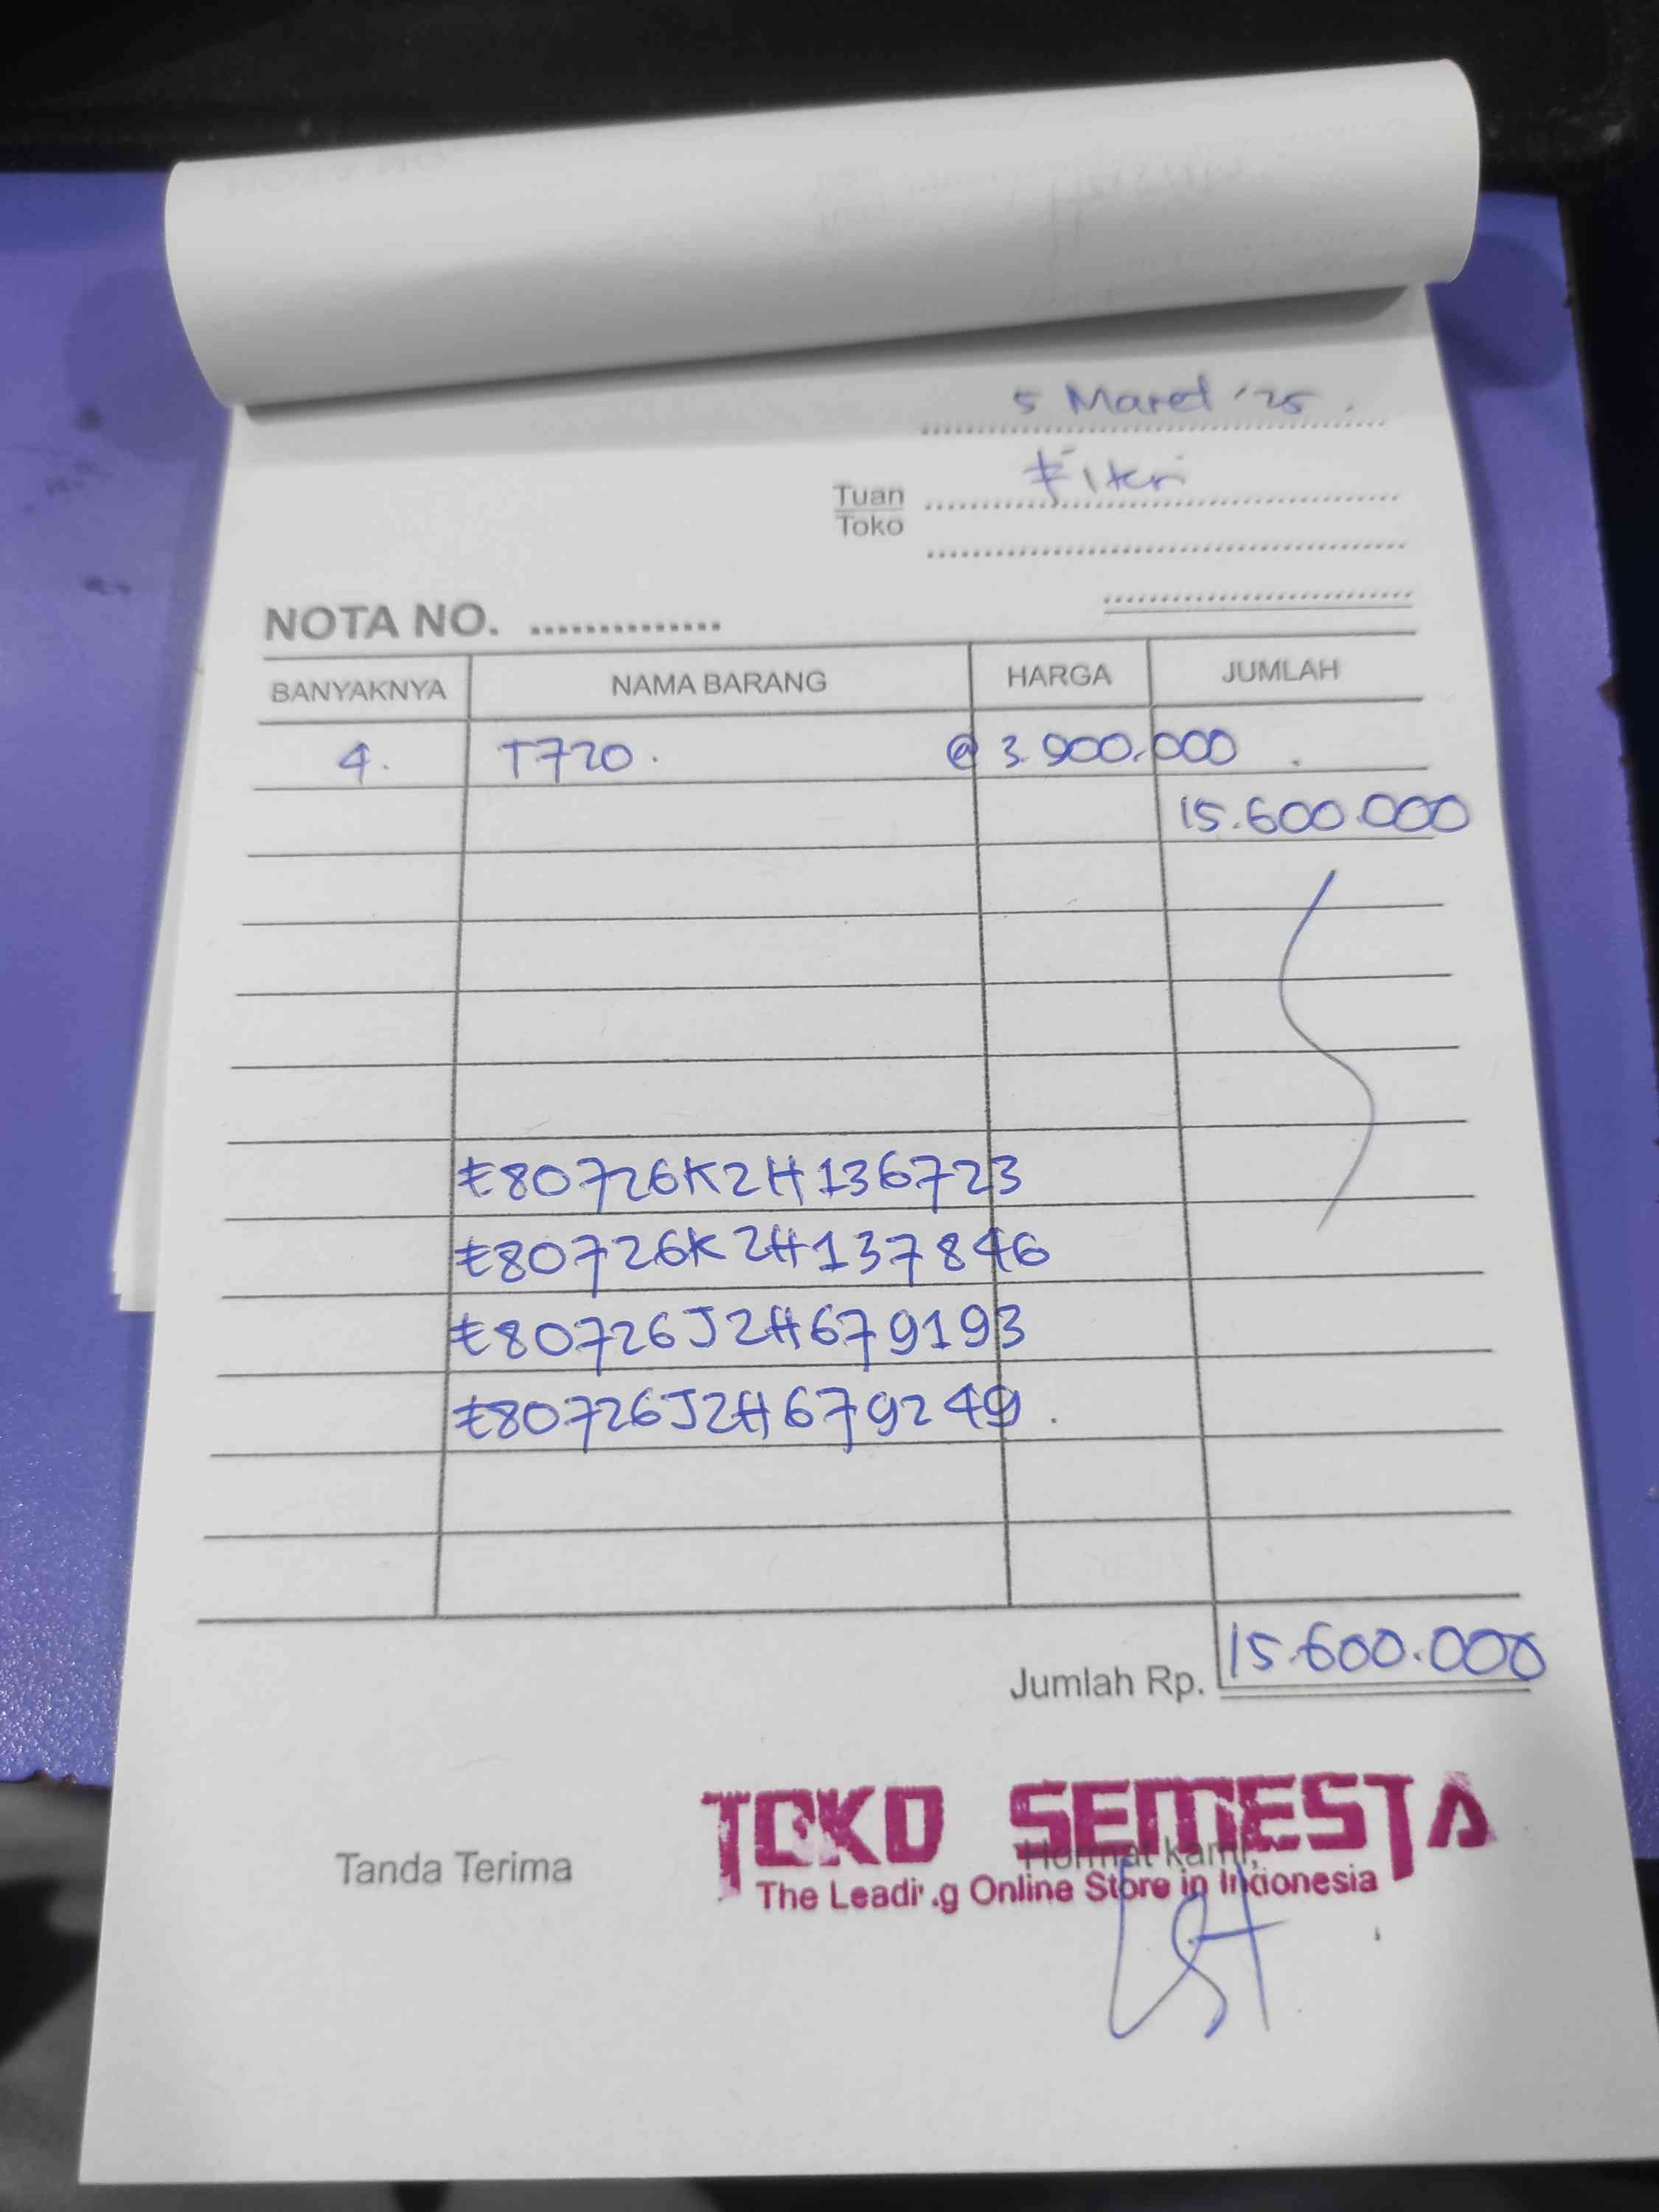 5 Maret '25.
Tuan Fitri
Toko
NOTA NO. ..............
BANYAKNYA NAMA BARANG HARGA JUMLAH
4. T720. @ 3.900.000
15.600.000
E80726K2H136723
E80726K2H137846
E80726J2H679193
E80726J2H679249.
Jumlah Rp. 15.600.000
TOKO SEMESTA
Tanda Terima Hormat kami,
The Leading Online Store in Indonesia